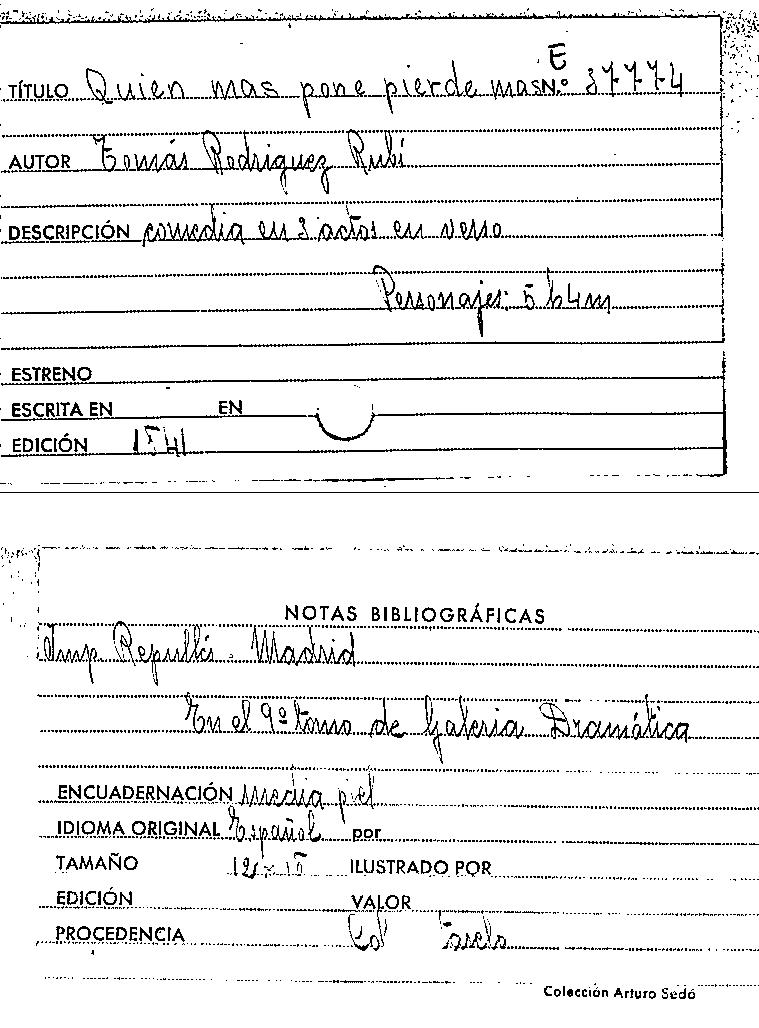 E
TÍTULO Quien mas pone pierde mas N.º 37774
AUTOR Tomás Rodriguez Rubí
DESCRIPCIÓN comedia en 3 actos en verso
Personajes: 5 h 4 m
ESTRENO
ESCRITA EN EN
EDICIÓN 1541
NOTAS BIBLIOGRÁFICAS
Imp Repullés. Madrid
En el 9º tomo de Galeria Dramática
ENCUADERNACIÓN media piel
IDIOMA ORIGINAL Español por
TAMAÑO ILUSTRADO POR
EDICIÓN VALOR
PROCEDENCIA
Colección Arturo Sedó